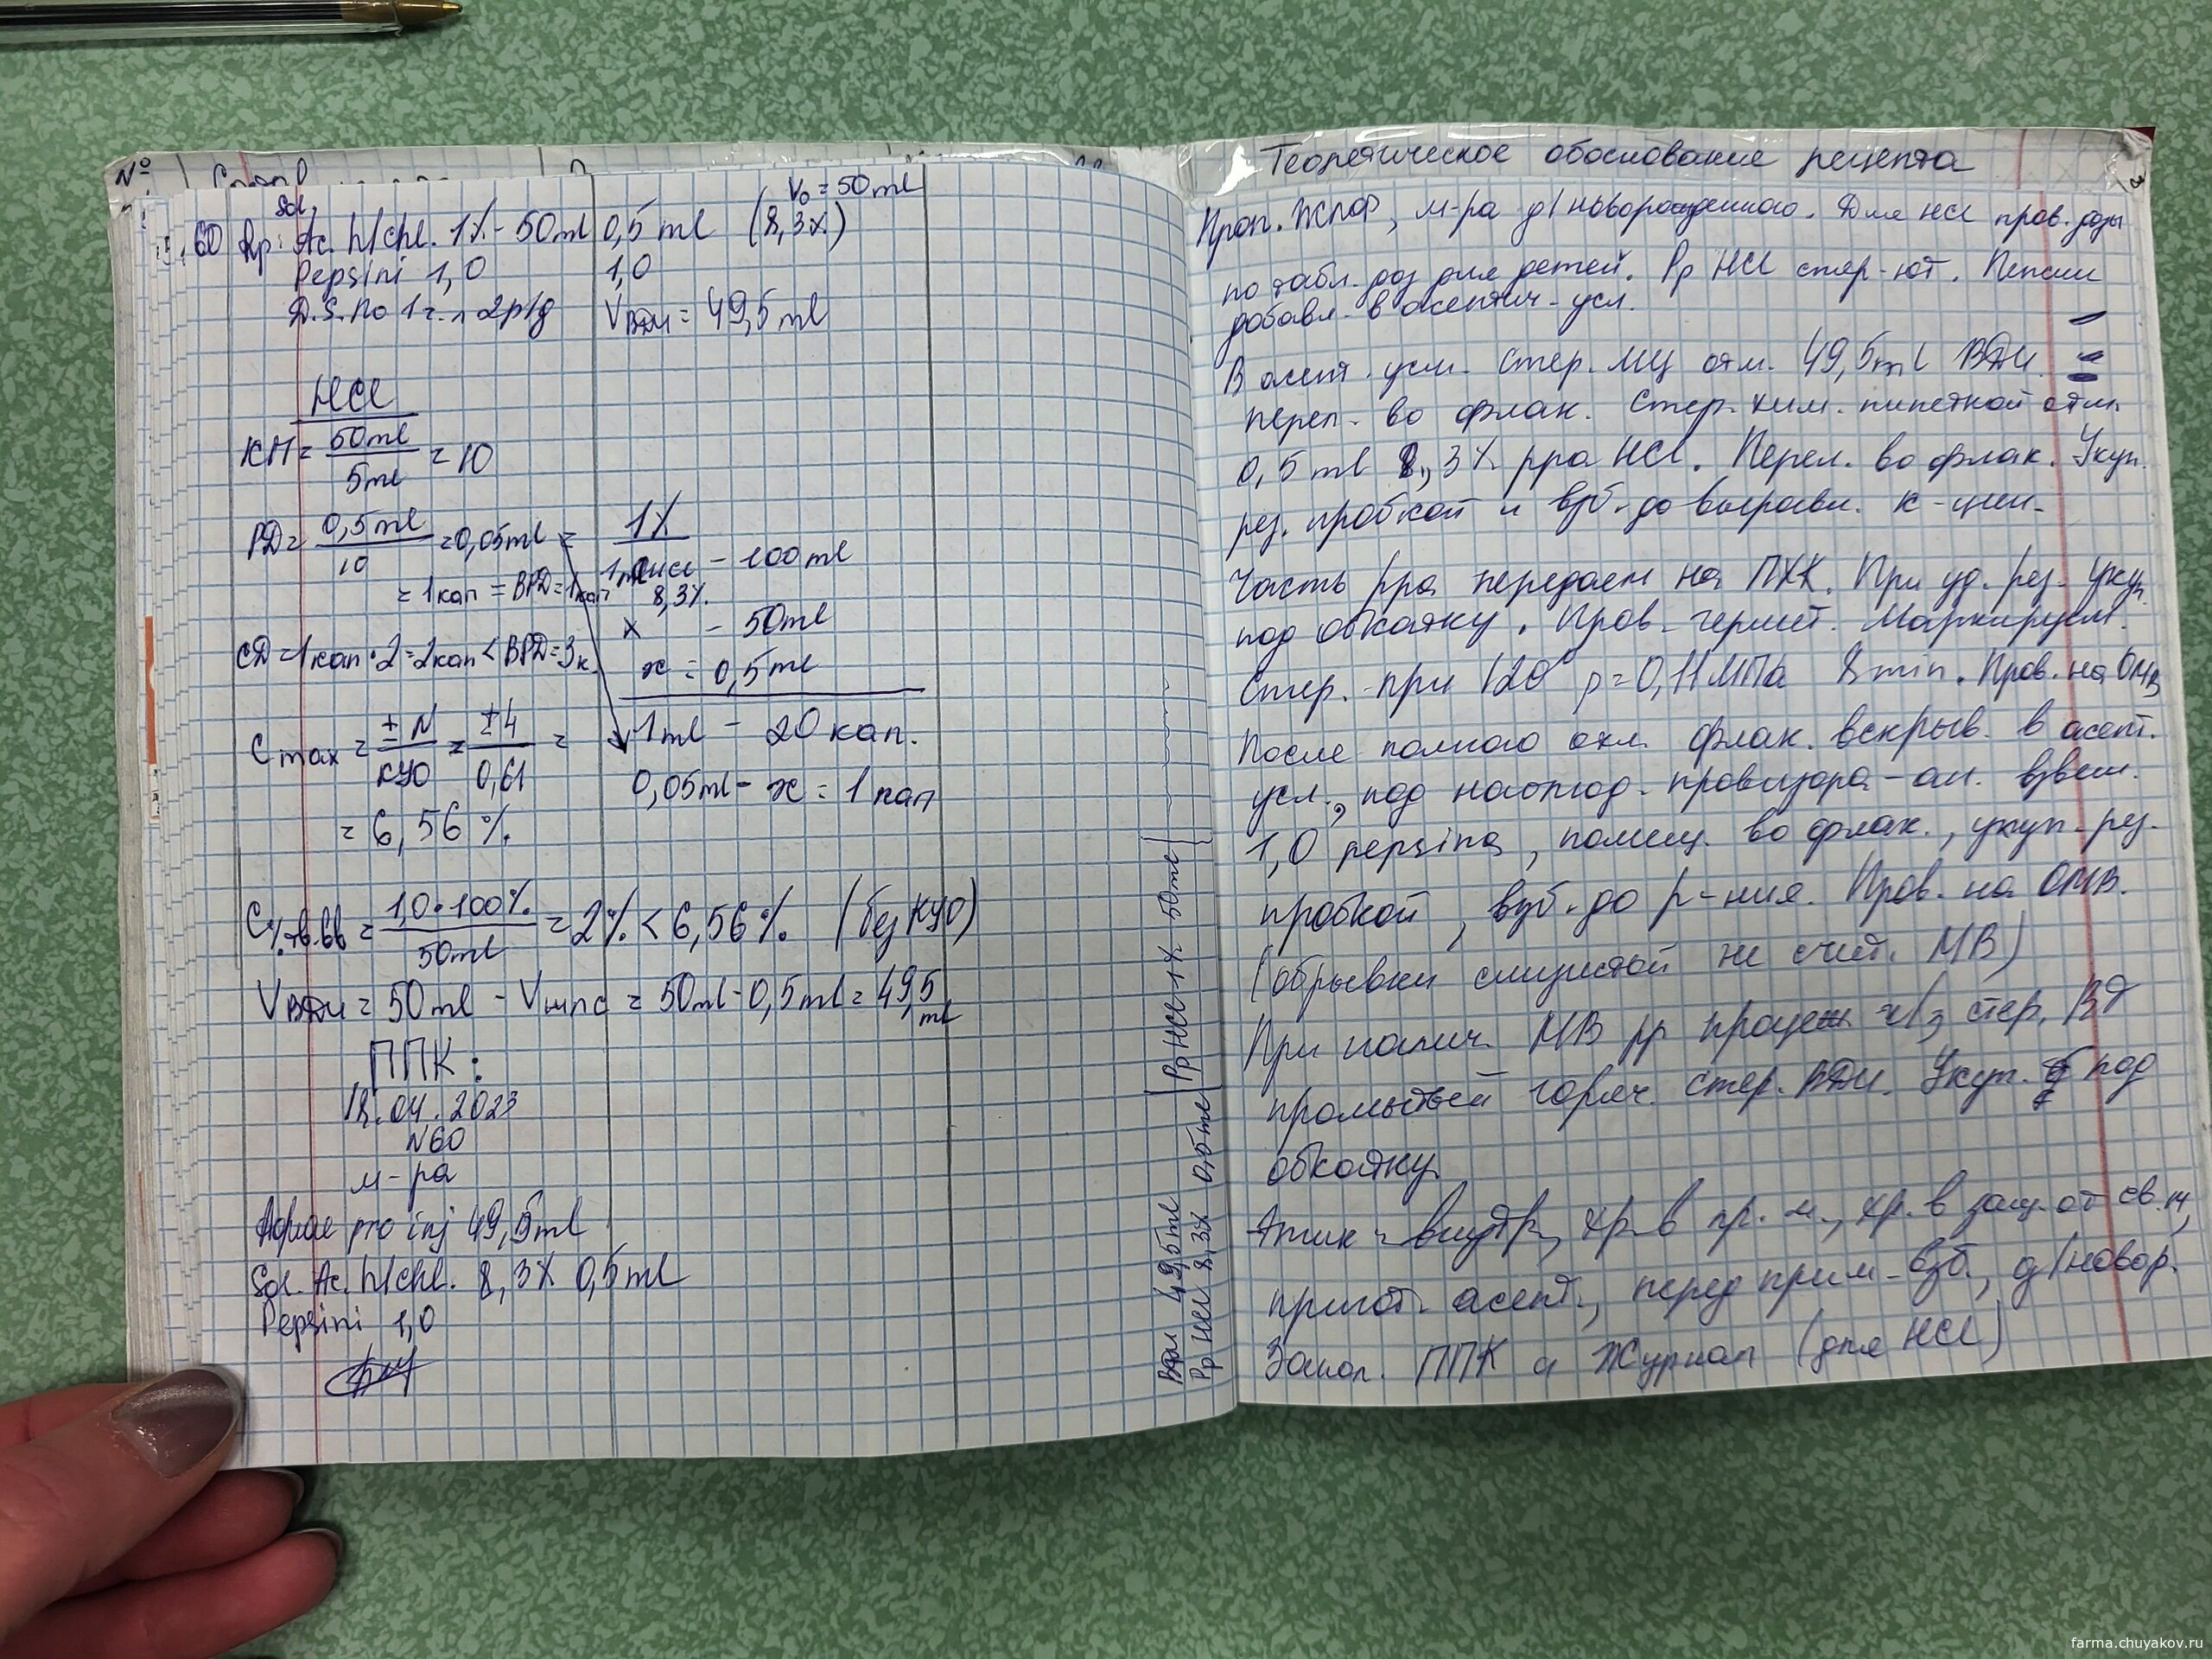 №
Состав
V₀ = 50 ml
Sol.
60 Rp: Ac. h/chl. 1% - 50 ml 0,5 ml (8,3%)
Pepsini 1,0 1,0
D.S. По 1 ч. л 2р/д VВДИ = 49,5 ml
HCl
КП = 50 ml / 5 ml = 10
РД = 0,5 ml / 10 = 0,05 ml =
= 1 кап = ВРД = 1 кап
СД = 1 кап • 2 = 2 кап < ВРД = 3 к.
1%
1 ml HCl - 100 ml
8,3%
x - 50 ml
x = 0,5 ml
1 ml - 20 кап.
0,05 ml - x = 1 кап
C max = ± N / КУО = ±4 / 0,61 =
= 6,56 %
C% тв. вв = 1,0 • 100% / 50 ml = 2% < 6,56 % (без КУО)
VВДИ = 50 ml - V = 50 ml - 0,5 ml = 49,5 ml
ППК:
18.04.2023
N60
м-ра
Aquae pro inj 49,5 ml
Sol. Ac. h/chl. 8,3% 0,5 ml
Pepsini 1,0
ВДИ 49,5 ml
Рр HCl 8,3% 0,5 ml | Рр HCl 1% 50 ml |
Теоретическое обоснование рецепта
3
Проп. ЖЛФ, м-ра д/новорожденного. Для HCl пров. дозы
по табл. доз для детей. Рр HCl стер-ют. Пепсин
добавл. в асептич. усл.
В асепт. усл. стер. МЦ отм. 49,5 ml ВДИ.
перел. во флак. Стер. хим. пипеткой отм.
0,5 ml 8,3% рра HCl. Перел. во флак. Укуп.
рез. пробкой и взб. до выравн. к-ции.
Часть рра передаем на ПХК. При уд. рез. укуп.
под обкатку. Пров. гермет. Маркируем.
Стер. при 120° p = 0,11 МПа 8 min. Пров. на ОМВ
После полного охл. флак. вскрыв. в асепт.
усл., под наблюд. провизора-ан. взвеш.
1,0 pepsina, помещ. во флак., укуп. рез.
пробкой, взб. до р-ния. Пров. на ОМВ.
(обрывки слизистой не счит. МВ)
При налич. МВ рр процеж ч/з стер. ВТ
промытый горяч. стер. ВДИ. Укуп. под
обкатку.
Этик: внутр, хр. в пр. м., хр. в защ. от св. м,
пригот. асепт., перед прим. взб., д/новор.
Запол. ППК и Журнал (для HCl)
farma.chuyakov.ru